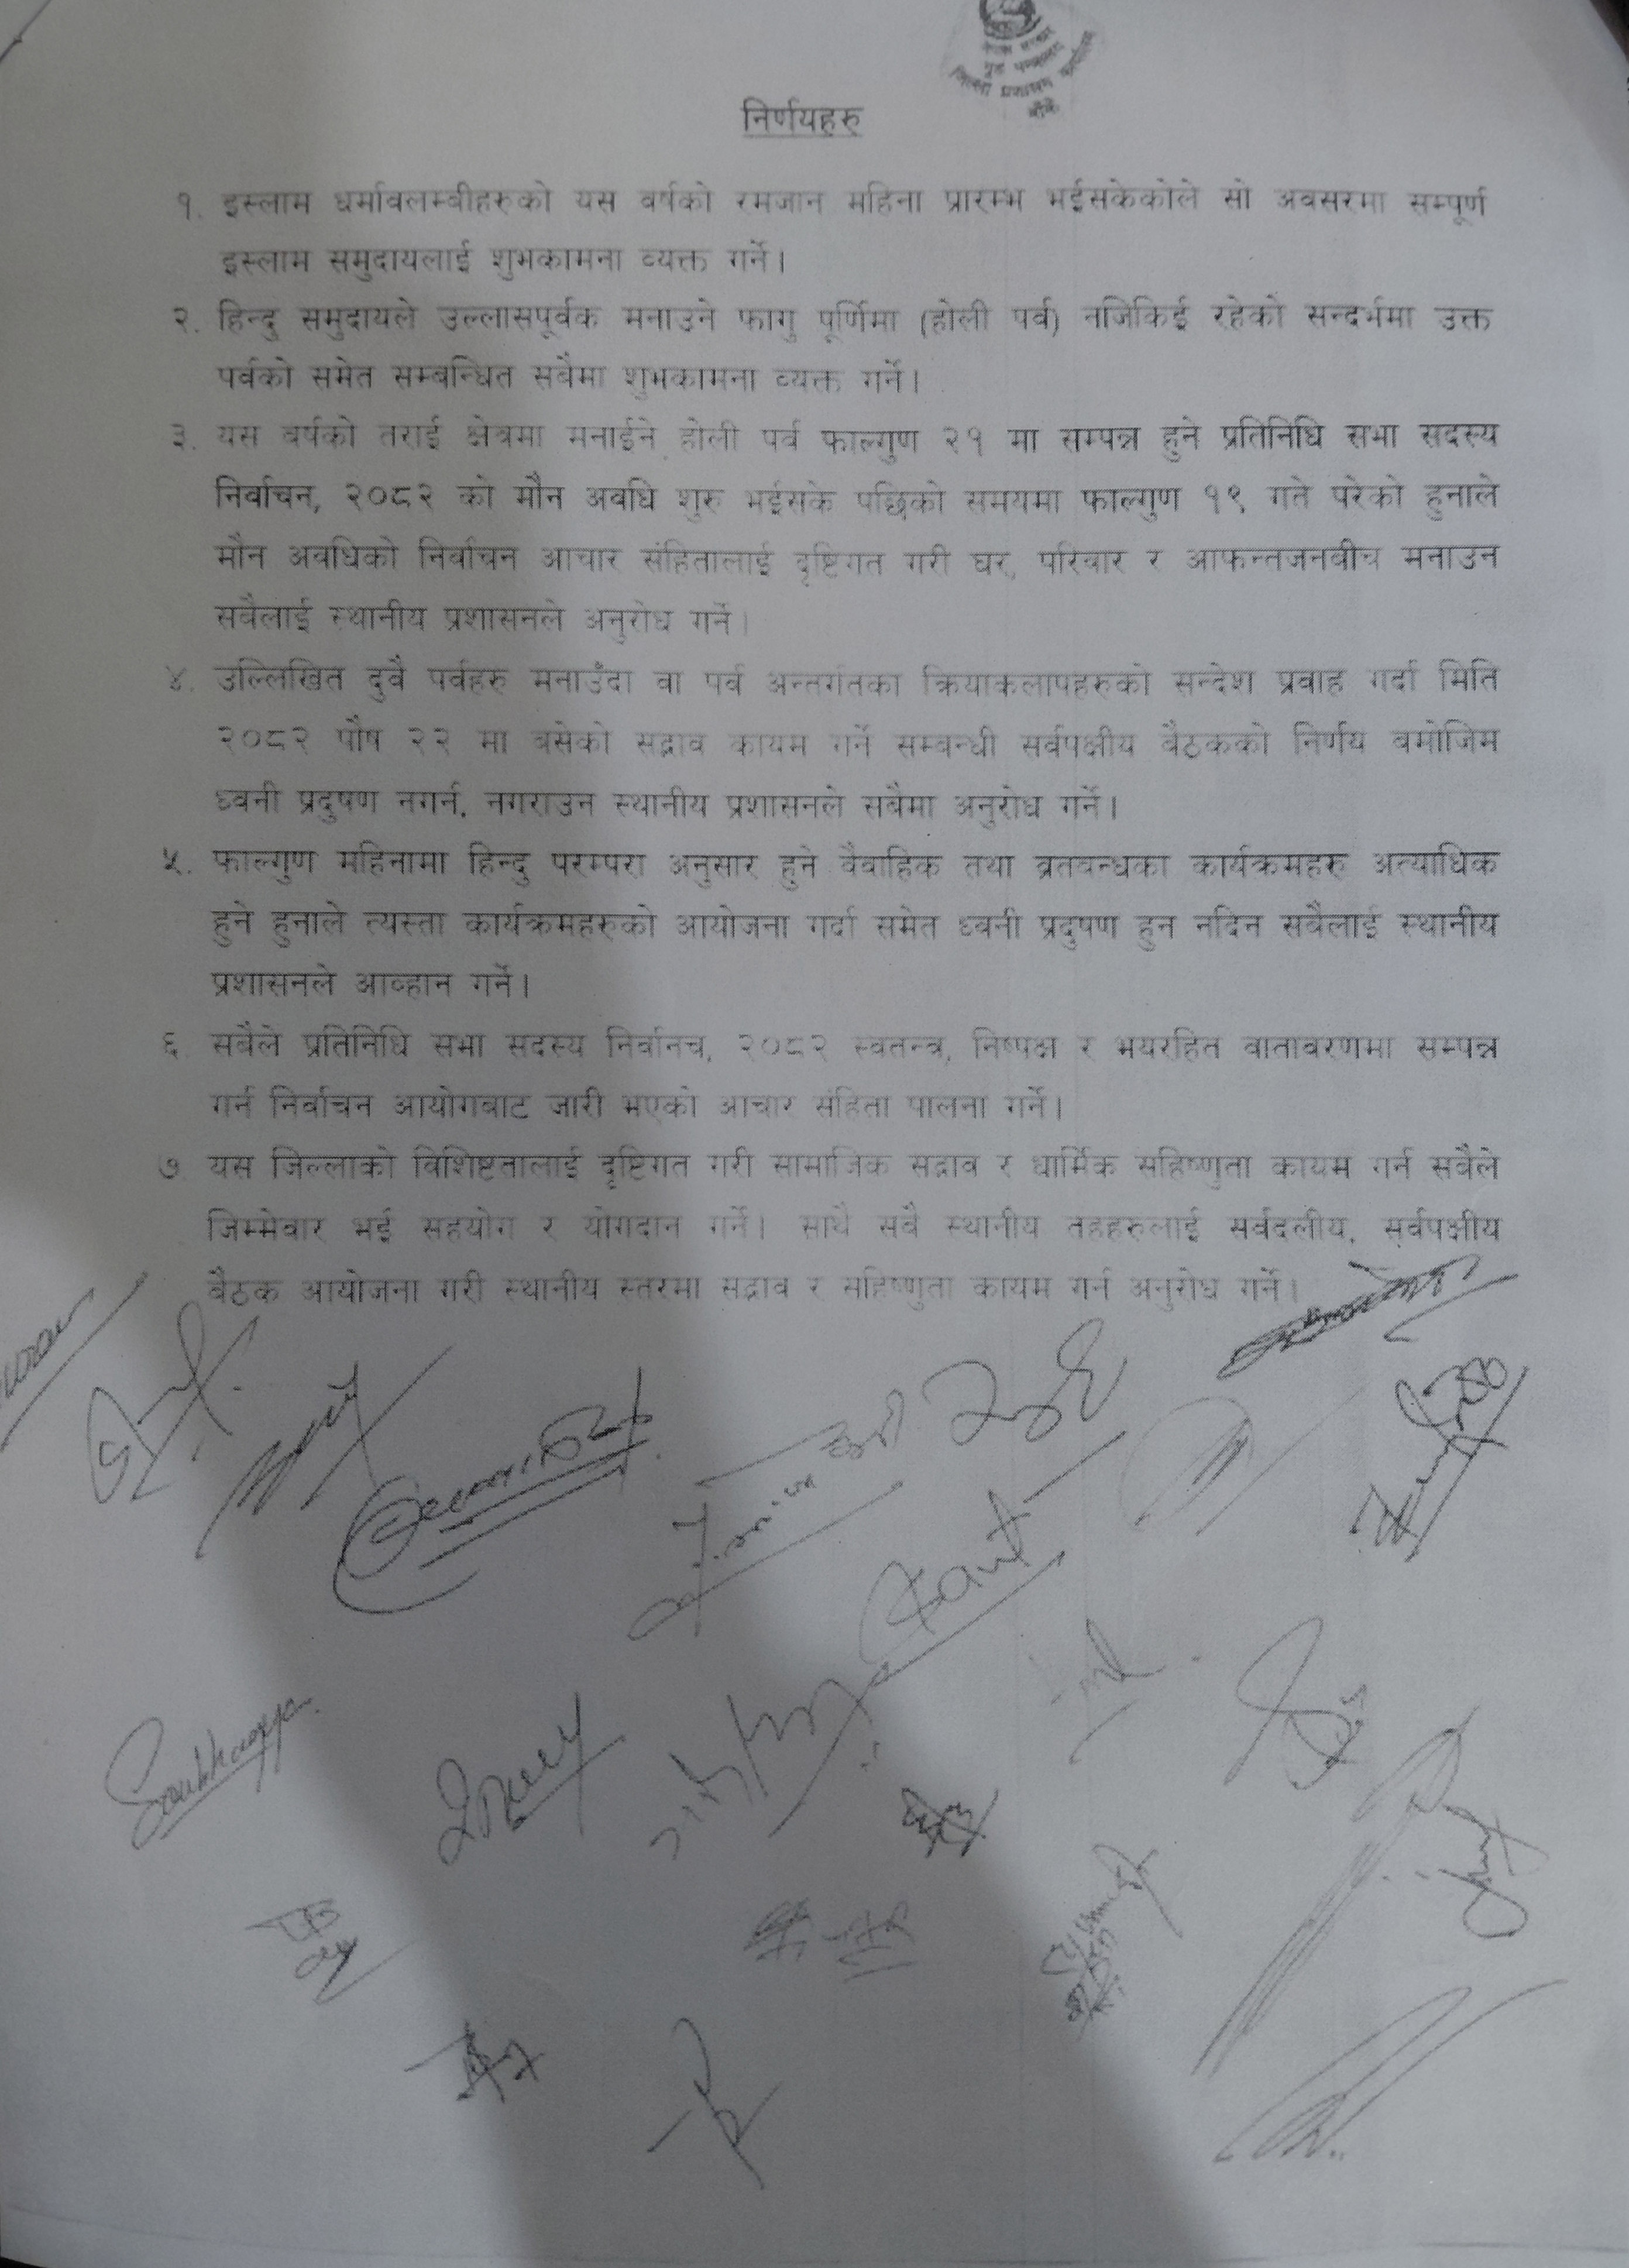 जिल्ला प्रशासन कार्यालय
बाँके
निर्णयहरु
१. इस्लाम धर्मावलम्बीहरुको यस वर्षको रमजान महिना प्रारम्भ भईसकेकोले सो अवसरमा सम्पूर्ण
इस्लाम समुदायलाई शुभकामना व्यक्त गर्ने।
२. हिन्दु समुदायले उल्लासपूर्वक मनाउने फागु पूर्णिमा (होली पर्व) नजिकिई रहेको सन्दर्भमा उक्त
पर्वको समेत सम्बन्धित सबैमा शुभकामना व्यक्त गर्ने।
३. यस वर्षको तराई क्षेत्रमा मनाईने होली पर्व फाल्गुण २१ मा सम्पन्न हुने प्रतिनिधि सभा सदस्य
निर्वाचन, २०८२ को मौन अवधि शुरु भईसके पछिको समयमा फाल्गुण १९ गते परेको हुनाले
मौन अवधिको निर्वाचन आचार संहितालाई दृष्टिगत गरी घर, परिवार र आफन्तजनबीच मनाउन
सबैलाई स्थानीय प्रशासनले अनुरोध गर्ने।
४. उल्लिखित दुवै पर्वहरु मनाउँदा वा पर्व अन्तर्गतका क्रियाकलापहरुको सन्देश प्रवाह गर्दा मिति
२०८२ पौष २२ मा बसेको सद्भाव कायम गर्ने सम्बन्धी सर्वपक्षीय बैठकको निर्णय बमोजिम
ध्वनी प्रदुषण नगर्न, नगराउन स्थानीय प्रशासनले सबैमा अनुरोध गर्ने।
५. फाल्गुण महिनामा हिन्दु परम्परा अनुसार हुने वैवाहिक तथा व्रतबन्धका कार्यक्रमहरु अत्याधिक
हुने हुनाले त्यस्ता कार्यक्रमहरुको आयोजना गर्दा समेत ध्वनी प्रदुषण हुन नदिन सबैलाई स्थानीय
प्रशासनले आव्हान गर्ने।
६. सबैले प्रतिनिधि सभा सदस्य निर्वानच, २०८२ स्वतन्त्र, निष्पक्ष र भयरहित वातावरणमा सम्पन्न
गर्न निर्वाचन आयोगबाट जारी भएको आचार संहिता पालना गर्ने।
७ यस जिल्लाको विशिष्टतालाई दृष्टिगत गरी सामाजिक सद्भाव र धार्मिक सहिष्णुता कायम गर्न सबैले
जिम्मेवार भई सहयोग र योगदान गर्ने। साथै सबै स्थानीय तहहरुलाई सर्वदलीय, सर्वपक्षीय
बैठक आयोजना गरी स्थानीय स्तरमा सद्भाव र सहिष्णुता कायम गर्न अनुरोध गर्ने।
Soubhagya